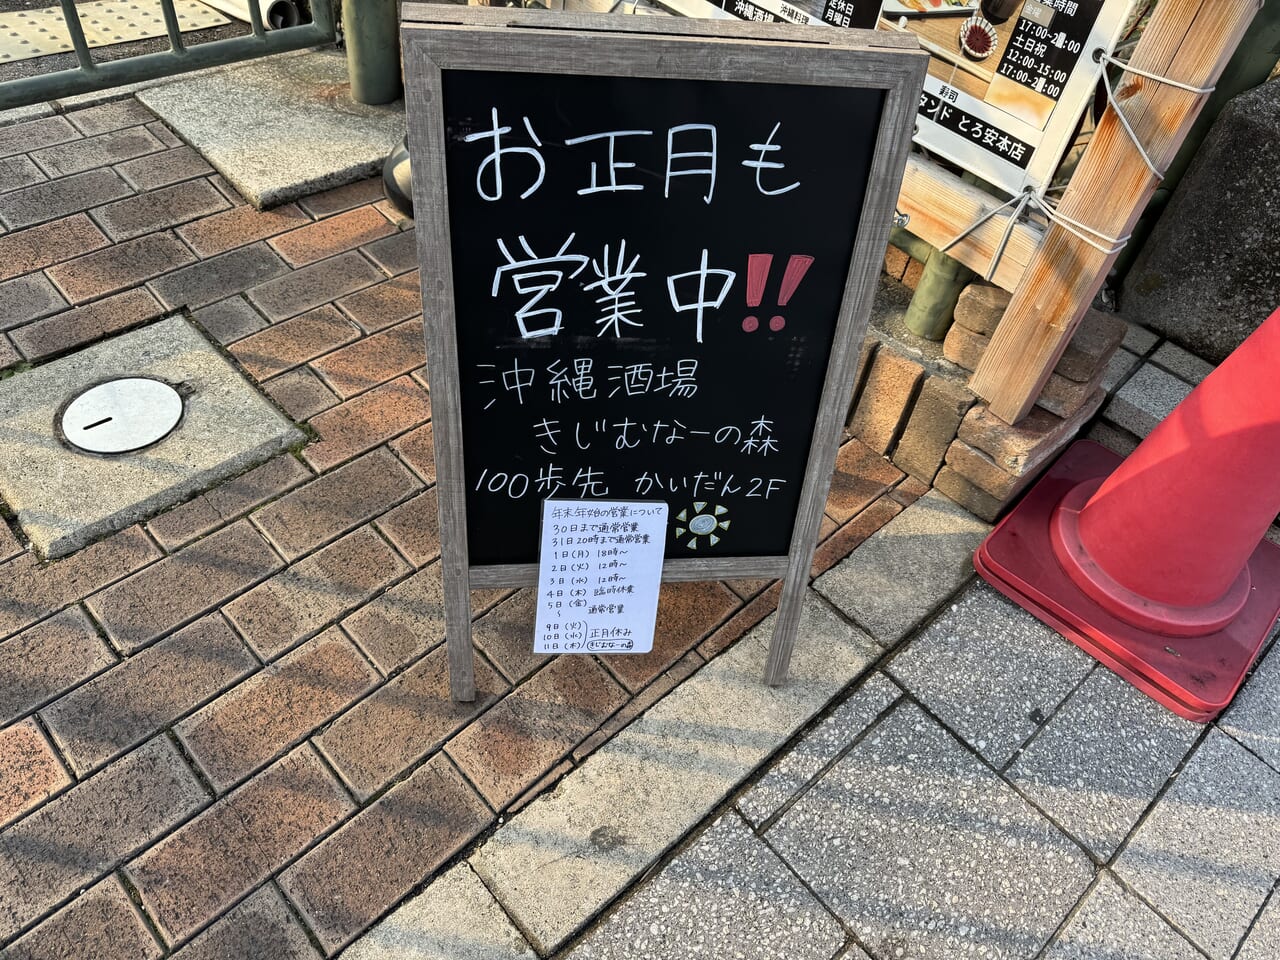 お正月も
営業中!!
沖縄酒場
きじむなーの森
100歩先 かいだん2F
年末年始の営業について
30日まで通常営業
31日20時まで通常営業
1日(月) 18時〜
2日(火) 12時〜
3日(水) 12時〜
4日(木) 臨時休業
5日(金)
〜 通常営業
9日(火)
10日(水) 正月休み
11日(木) きじむなーの森
沖縄酒場
沖縄料理
定休日
月曜日
営業時間
土日祝
12:00-15:00
寿司
タンド とろ安本店